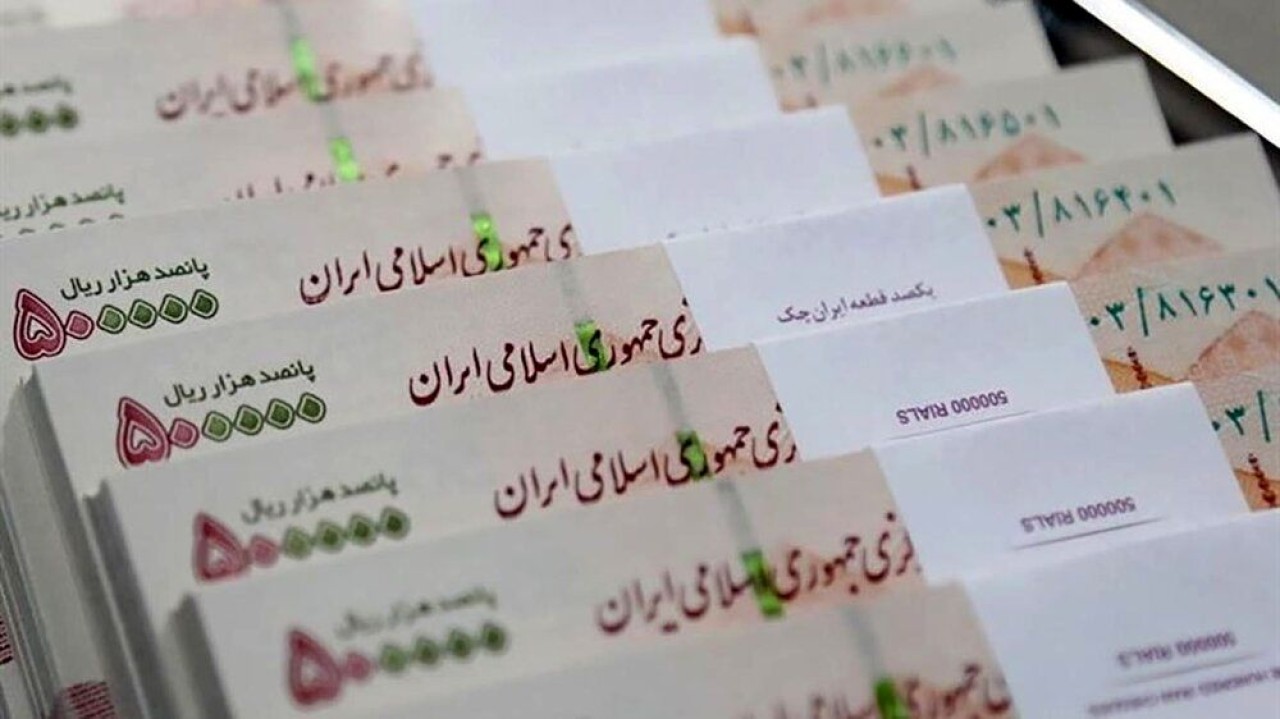 جمهوری اسلامی ایران
۰۳/۸۱۶۶۰۱
پانصد هزار ریال
۰۳/۸۱۶۵۰۱
پانصد هزار ریال
۵۰۰۰۰۰
جمهوری اسلامی ایران
۰۳/۸۱۶۴۰۱
پانصد هزار ریال
۵۰۰۰۰۰
جمهوری اسلامی ایران
یکصد قطعه ایران چک
۰۳/۸۱۶۳۰۱
پانصد هزار ریال
۵۰۰۰۰۰
جمهوری اسلامی ایران
500000 RIALS
۰۳/
پانصد هزار ریال
۵۰۰۰۰۰
جمهوری اسلامی ایران
500000 RIALS
500000 RIALS
HUNDRED IRAN CHEQUES